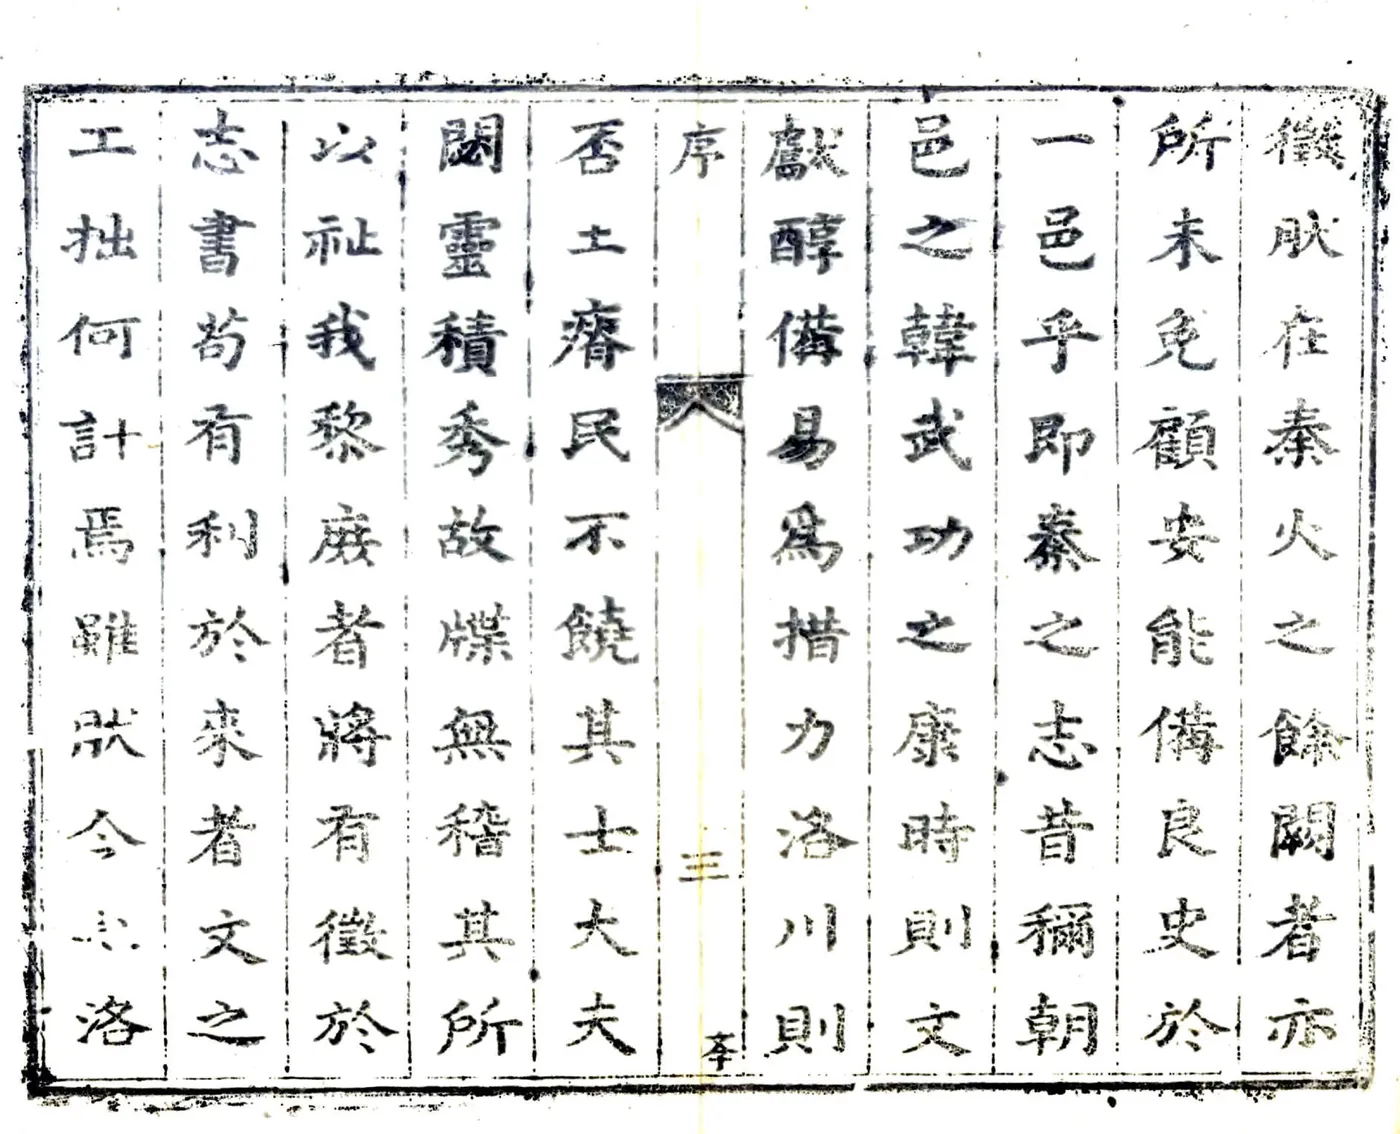 徵肰在秦火之餘闕者亦
所未免顧安能備良史於
一邑乎即秦之志昔稱朝
邑之韓武功之康時則文
獻醇備易爲措力洛川則
序
三
否土瘠民不饒其士大夫
閟靈積秀故牒無稽其所
以祉我黎庻者將有徵於
志書茍有利於來者文之
工拙何計焉雖肰今志洛